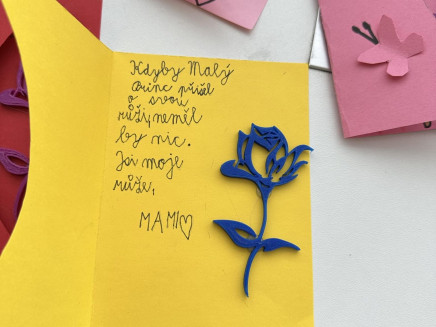 Kdyby Malý
princ přišel
o svou
růži, neměl
by nic.
Jsi moje
růže,
MAMI♡